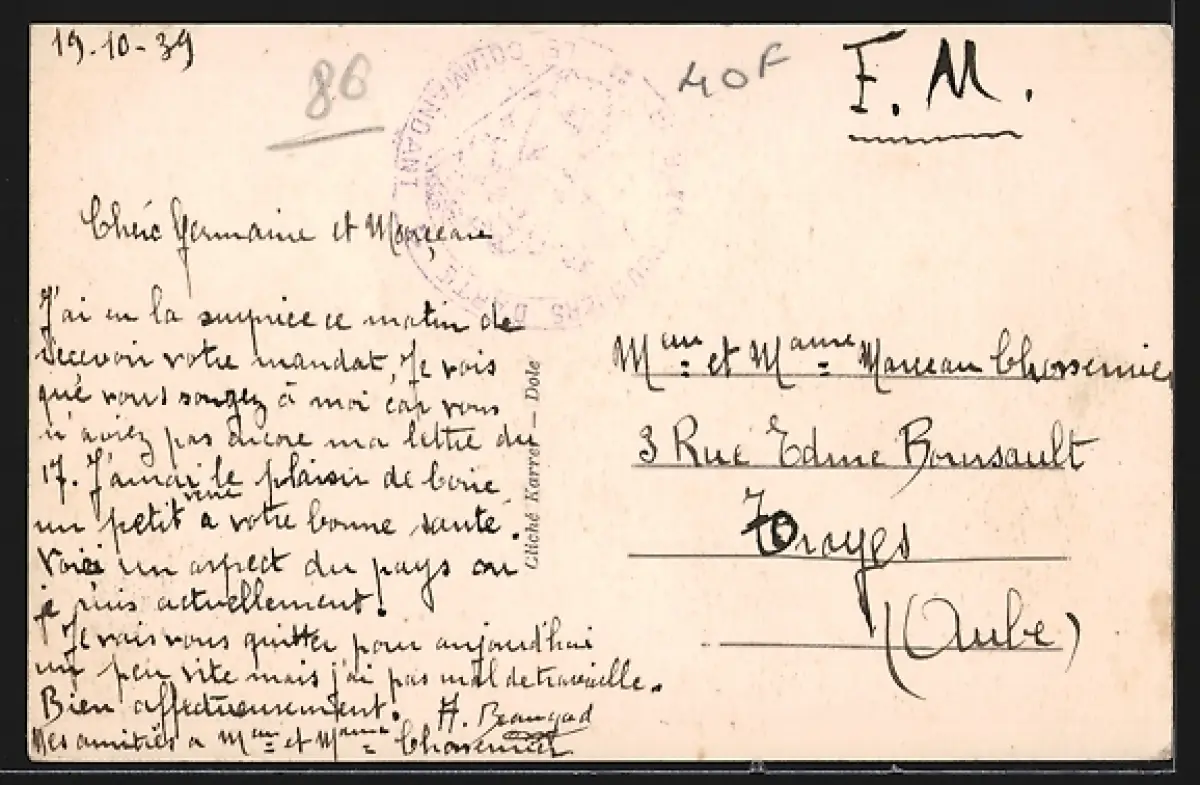 19.10-39
86
40F
F. M.
COMMANDANT
Chére Germaine et Marceau
J'ai eu la surprice ce matin de
recevoir votre mandat, Je vois
que vous songez à moi car vous
n'aviez pas encore ma lettre du
17. J'aurai le plaisir de boire
un petit verre a votre bonne santé.
Voici un aspect du pays ou
je suis actuellement.
Je vais vous quitter pour aujourd'hui
un peu vite mais j'ai pas mal de travaille.
Bien affectueusement. A.
Mes amitiés a M et M
Cliché Karrer — Dole
M et M Marceau
3 Rue Edme Boursault
Troyes
(Aube)